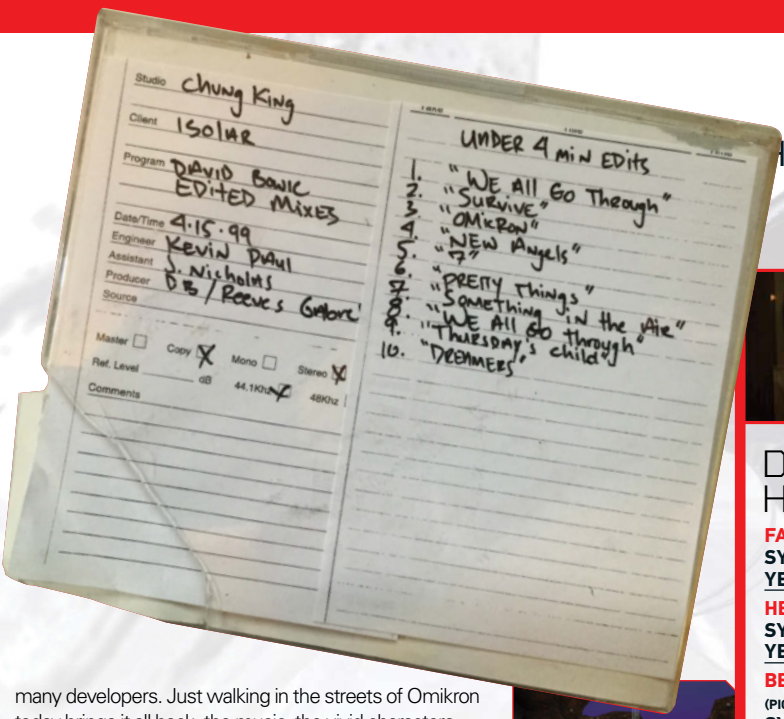 Studio Chung King
Client ISOLAR
Program DAVID BOWIE
EDITED MIXES
Date/Time 4.15.99
Engineer Kevin Paul
Assistant J. Nicholas
Producer DB / Reeves Gabrels
Source
Master Copy X Mono Stereo X
Ref. Level dB 44.1Khz 48Khz
Comments
UNDER 4 MIN EDITS
1. "WE All Go Through"
2. "SURVIVE"
3. "OMIKRON"
4. "NEW Angels"
5. "7"
6. "PRETTY THINGS"
7. "SOMETHING in the Air"
8. "WE All Go through"
9. "THURSDAY'S child"
10. "DREAMERS"
many developers. Just walking in the streets of Omikron
today brings it all back, the music, the vivid characters
H
D
H
FA
SY
YE
HE
SY
YE
BE